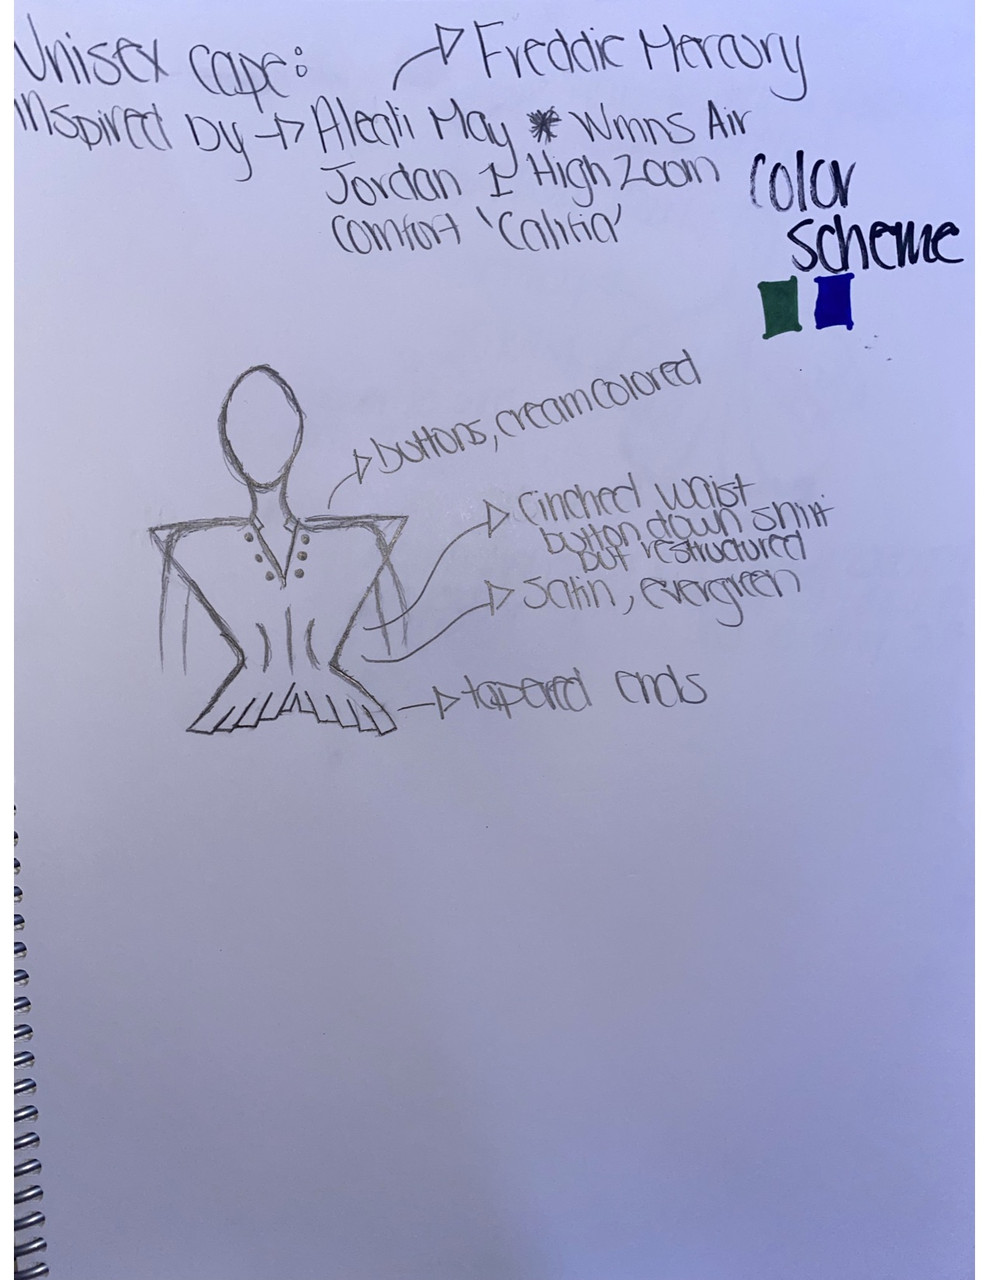 Unisex cape:
Freddie Mercury
inspired by → Aleali May * Wmns Air
Jordan 1 High Zoom
Comfort 'Califia'
Color
scheme
buttons, cream colored
Cinched waist
button down shirt
but restructured
Satin, evergreen
tapered ends